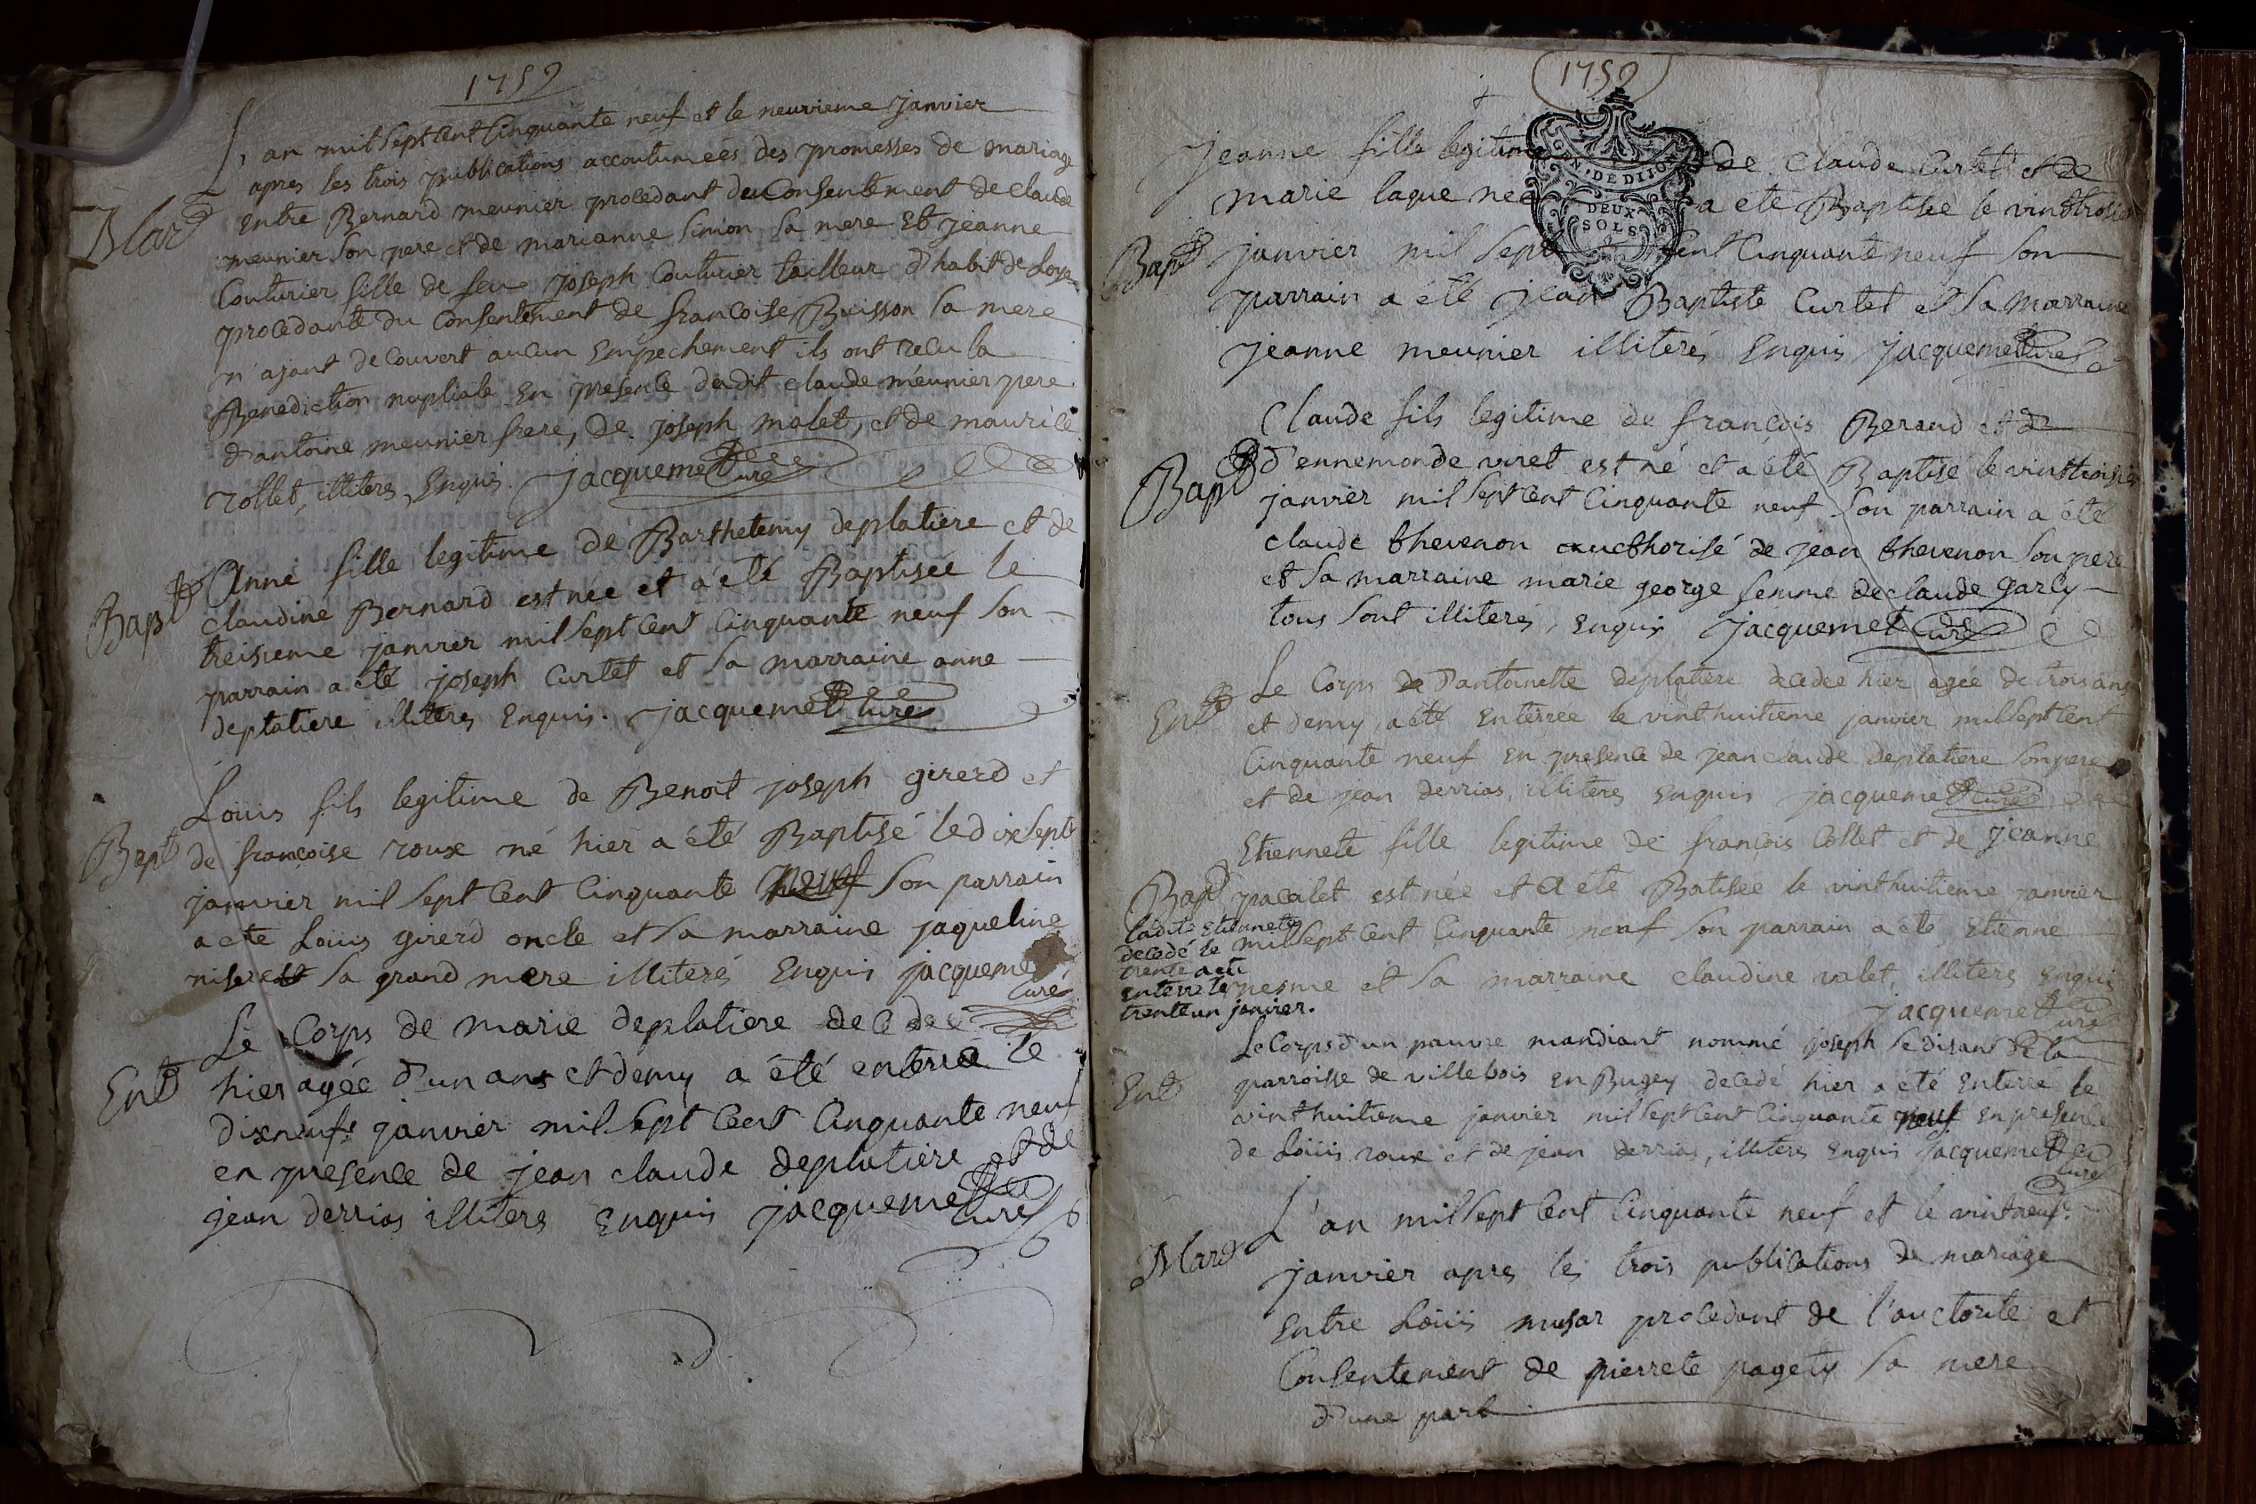 1759
L'an mil sept cent cinquante neuf et le neuvieme janvier
apres les trois publications accoutumées des promesses de mariage
Mard entre Bernard meunier procedant du consentement de claude
meunier son pere et de marianne simon sa mere et jeanne
Couturier fille de feu joseph Couturier tailleur d'habit de
procedante du consentement de francoise Buisson sa mere
n'ajant decouvert aucun empechement ils ont recu la
Benediction nuptiale en presence dudit claude meunier pere
d'antoine meunier frere, de joseph molet, et de maurice
rollet, illiteres Enquis. jacquemet Curé
Anne fille legitime de Barthelemy deplatiere et de
Bapt claudine Bernard est née et a été Baptisée le
treisieme janvier mil sept cent cinquante neuf son
parrain a été joseph Curtet et sa marraine anne
deplatiere illiteres Enquis. jacquemet Curé
Loüis fils legitime de Benoit joseph girerd et
Bapt de francoise roux né hier a été Baptisé le dix sept
janvier mil sept cent cinquante neuf son parrain
a été Loüis girerd oncle et sa marraine jaqueline
sa grand mere illiterés Enquis jacquemet
Curé
Le Corps de marie deplatiere decedee
Ent hier agée d'un ans et demy a été enterré le
dixneuf janvier mil sept cent cinquante neuf
en presence de jean claude deplatiere et de
jean derrias illiteres Enquis jacquemet Curé
1759
GEN. DE DIJON
DEUX
SOLS
Jeanne fille legitime de Claude Curtet et de
marie laque née a été Baptisée le vint
Bapt janvier mil sept cent cinquante neuf son
parrain a été jean Baptiste Curtet et sa marraine
jeanne meunier illiterés Enquis jacquemet Curé
Claude fils legitime de françois Beraud et
Bapt d'ennemonde viret est né et a été Baptisé le vint
janvier mil sept cent cinquante neuf son parrain a été
claude thevenon aucthorisé de jean thevenon son pere
et sa marraine marie george femme de claude garly
tous sont illiterés, enquis jacquemet Curé
Le Corps de d'antoinette deplatiere decedee hier agée de trois ans
Ent et demy, a été enterree le vinthuitieme janvier mil sept cent
cinquante neuf en presence de jean claude deplatiere son pere
et de jean derrias, illiteres enquis jacquemet Curé
Etiennete fille legitime de françois Collet et de jeanne
Bapt pacalet est née et a été Batisée le vinthuitieme janvier
mil sept cent cinquante neuf son parrain a été Etienne
et sa marraine claudine valet, illiteres enquis
jacquemet Curé
ladite Etiennete
decedé le
trente a été
enterre le
trente un janvier.
Le Corps d'un pauvre mandiant nommé joseph se disant de la
Ent parroisse de villebois en Bugey decedé hier a été enterré le
vinthuitieme janvier mil sept cent cinquante neuf en presence
de Loüis roux et de jean derrias, illiteres enquis jacquemet
Curé
L'an mil sept cent cinquante neuf et le vintneuf
Mard janvier apres les trois publications de mariage
Entre Loüis musar procedant de l'auctorite et
Consentement de pierrete pagety sa mere
d'une part